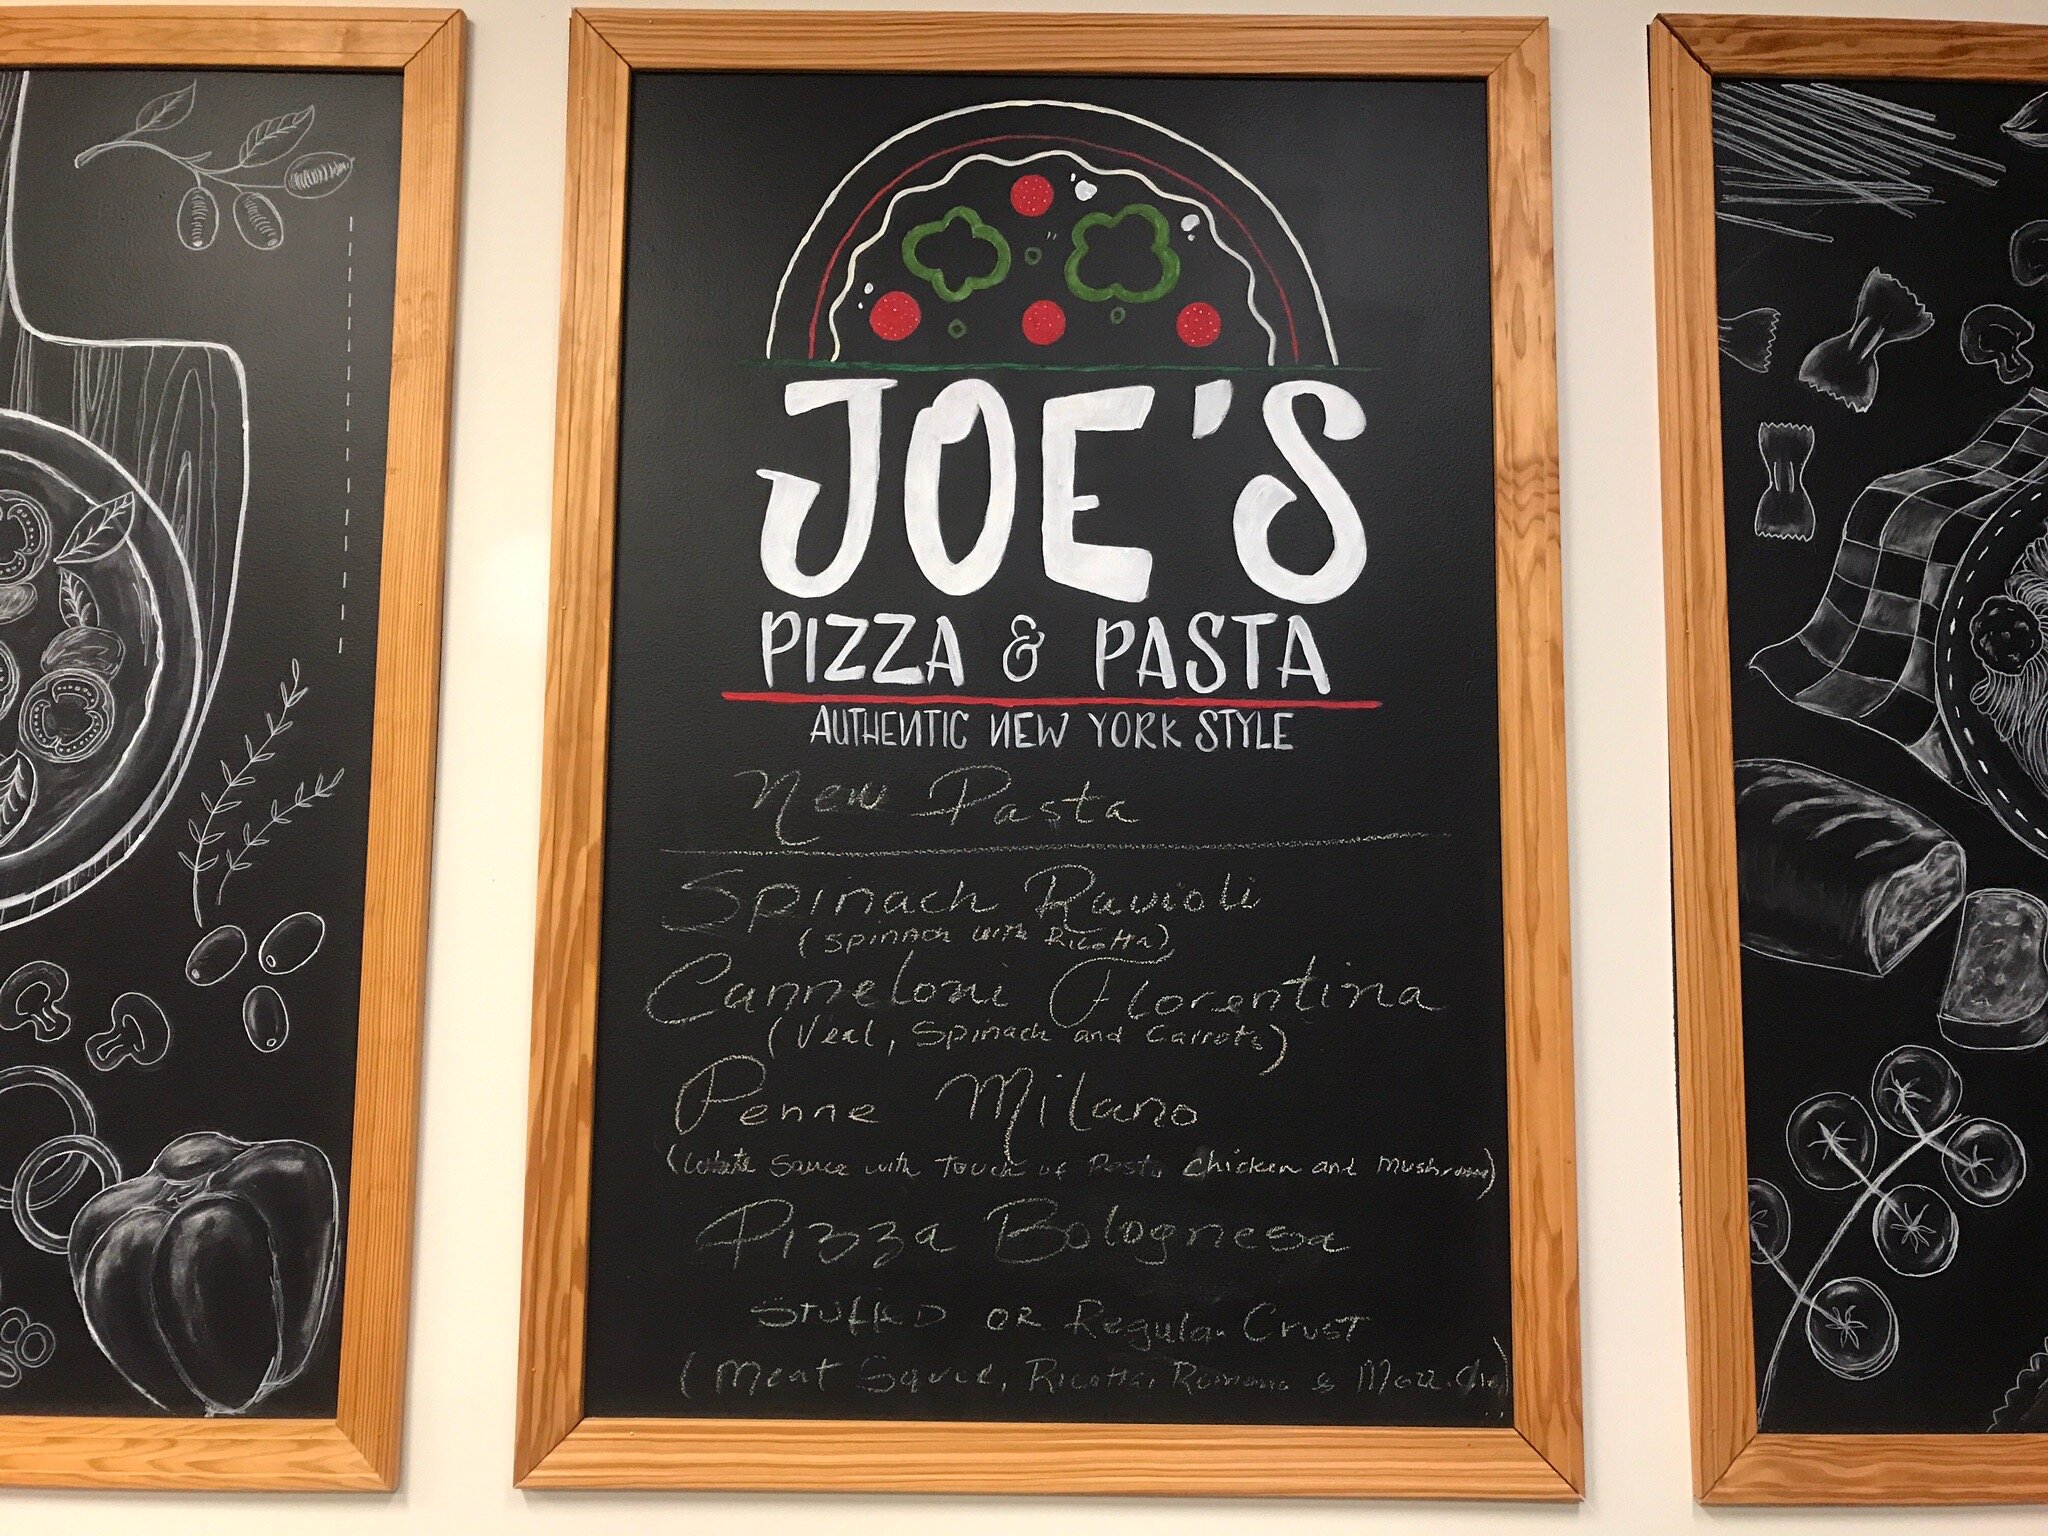 JOE'S
PIZZA & PASTA
AUTHENTIC NEW YORK STYLE
New Pasta
Spinach Ravioli
(Spinach with Ricotta)
Canneloni Florentina
(Veal, Spinach and Carrots)
Penne Milano
(White Sauce with Touch of Pesto Chicken and Mushroom)
Pizza Bolognesa
STUFFED OR Regular Crust
(Meat Sauce, Ricotta, Romano & Mozz.